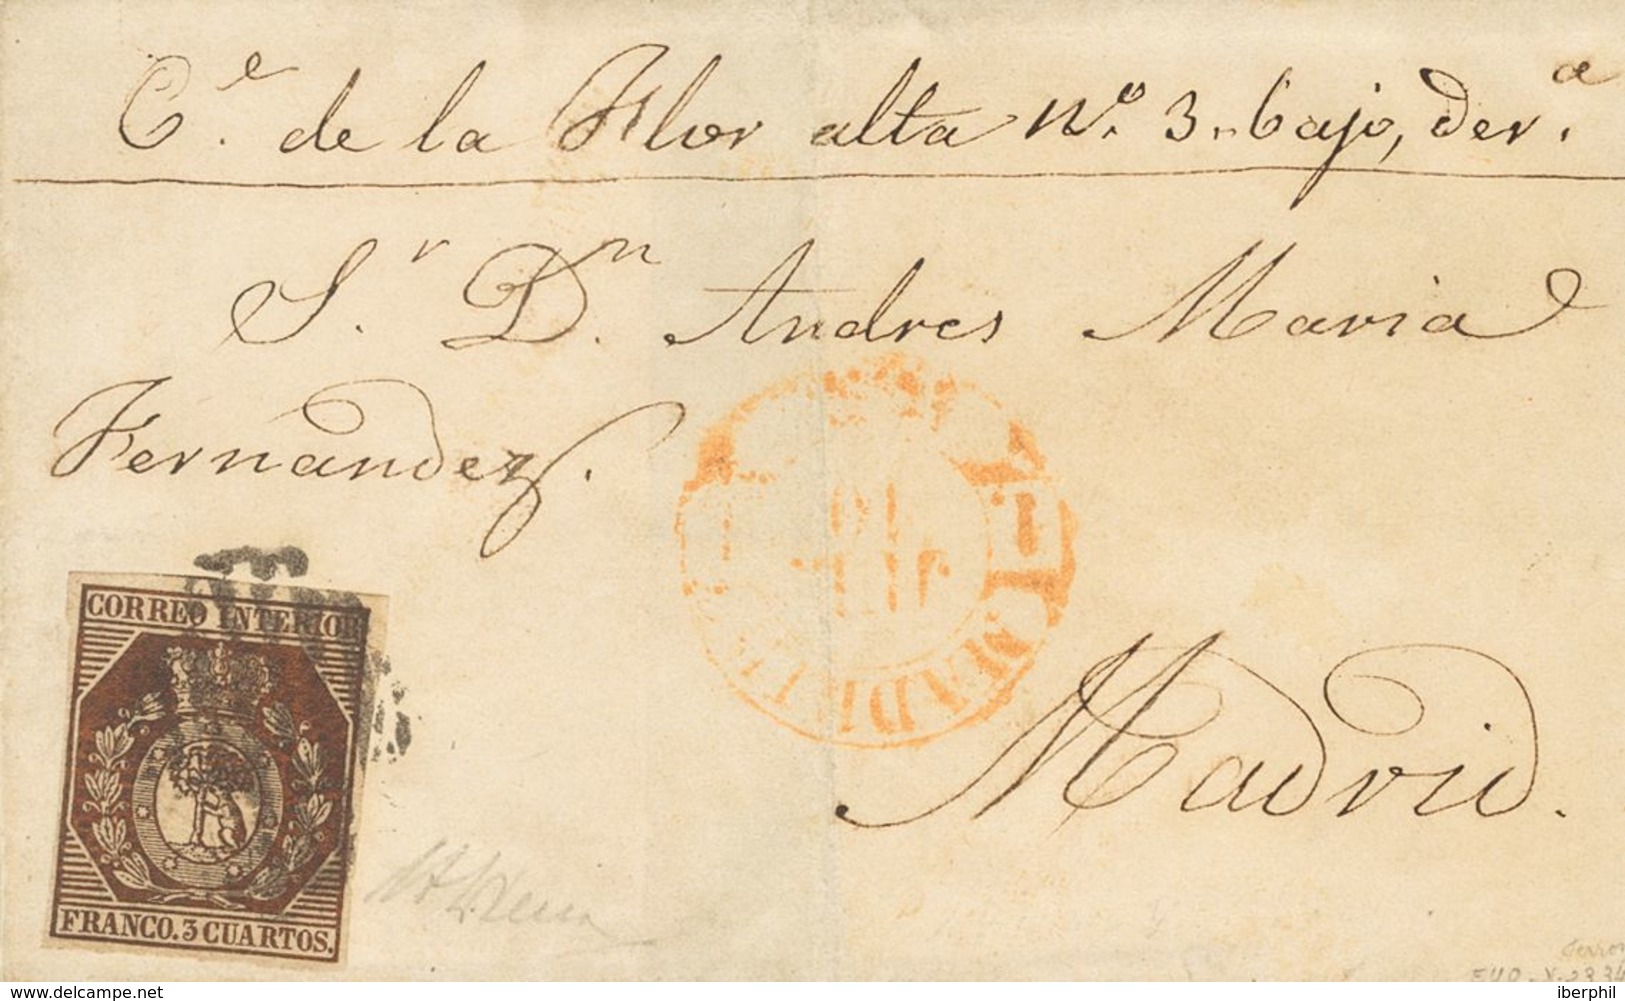 C.ᵉ de la Flor alta Nº. 3. bajo, der.ᵃ
S.ʳ D.ⁿ Andres Maria
Fernandez.
Madrid.
CORREO INTERIOR
FRANCO. 3 CUARTOS.
www.delcampe.net
iberphil